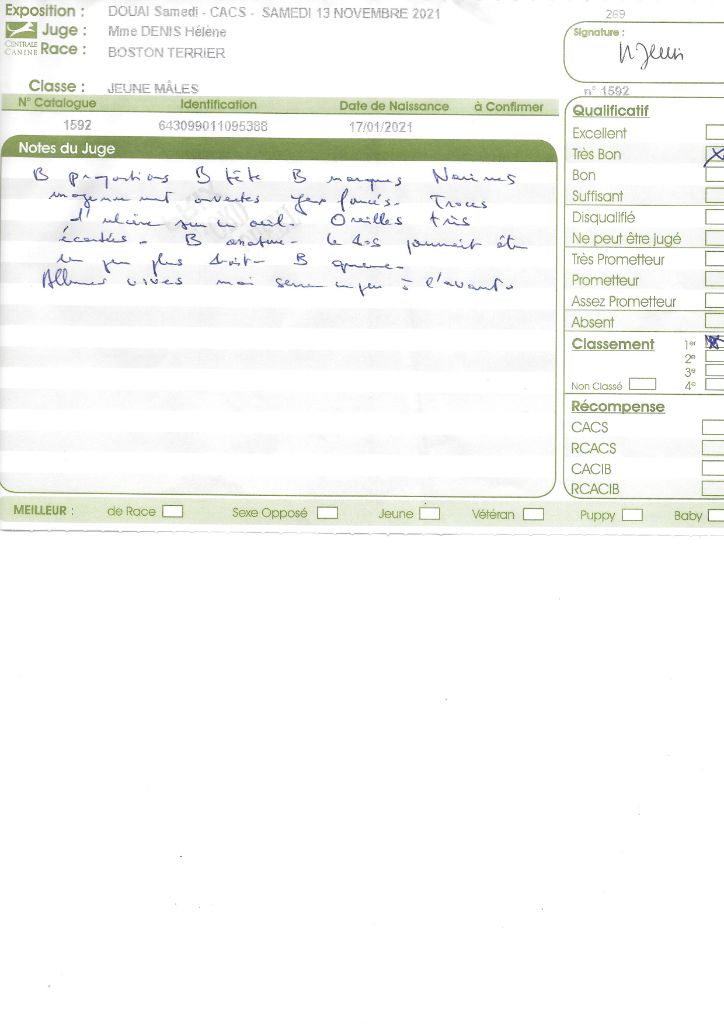 Exposition : DOUAI Samedi - CACS - SAMEDI 13 NOVEMBRE 2021
269
Juge : Mme DENIS Hélène
Signature :
CENTRALE CANINE
Race : BOSTON TERRIER
Classe : JEUNE MÂLES
n° 1592
N° Catalogue Identification Date de Naissance à Confirmer
1592 643099011095388 17/01/2021
Notes du Juge
B proportions B tête B marques Narines
moyennement ouvertes yeux foncés. Traces
d'ulcère sur un oeil. Oreilles très
écartées - B ossature - le dos pourrait être
un peu plus droit - B queue -
Allures vives mai serre un peu à l'avant.
Qualificatif
Excellent
Très Bon
Bon
Suffisant
Disqualifié
Ne peut être jugé
Très Prometteur
Prometteur
Assez Prometteur
Absent
Classement 1er
2e
3e
Non Classé 4e
Récompense
CACS
RCACS
CACIB
RCACIB
MEILLEUR : de Race Sexe Opposé Jeune Vétéran Puppy Baby